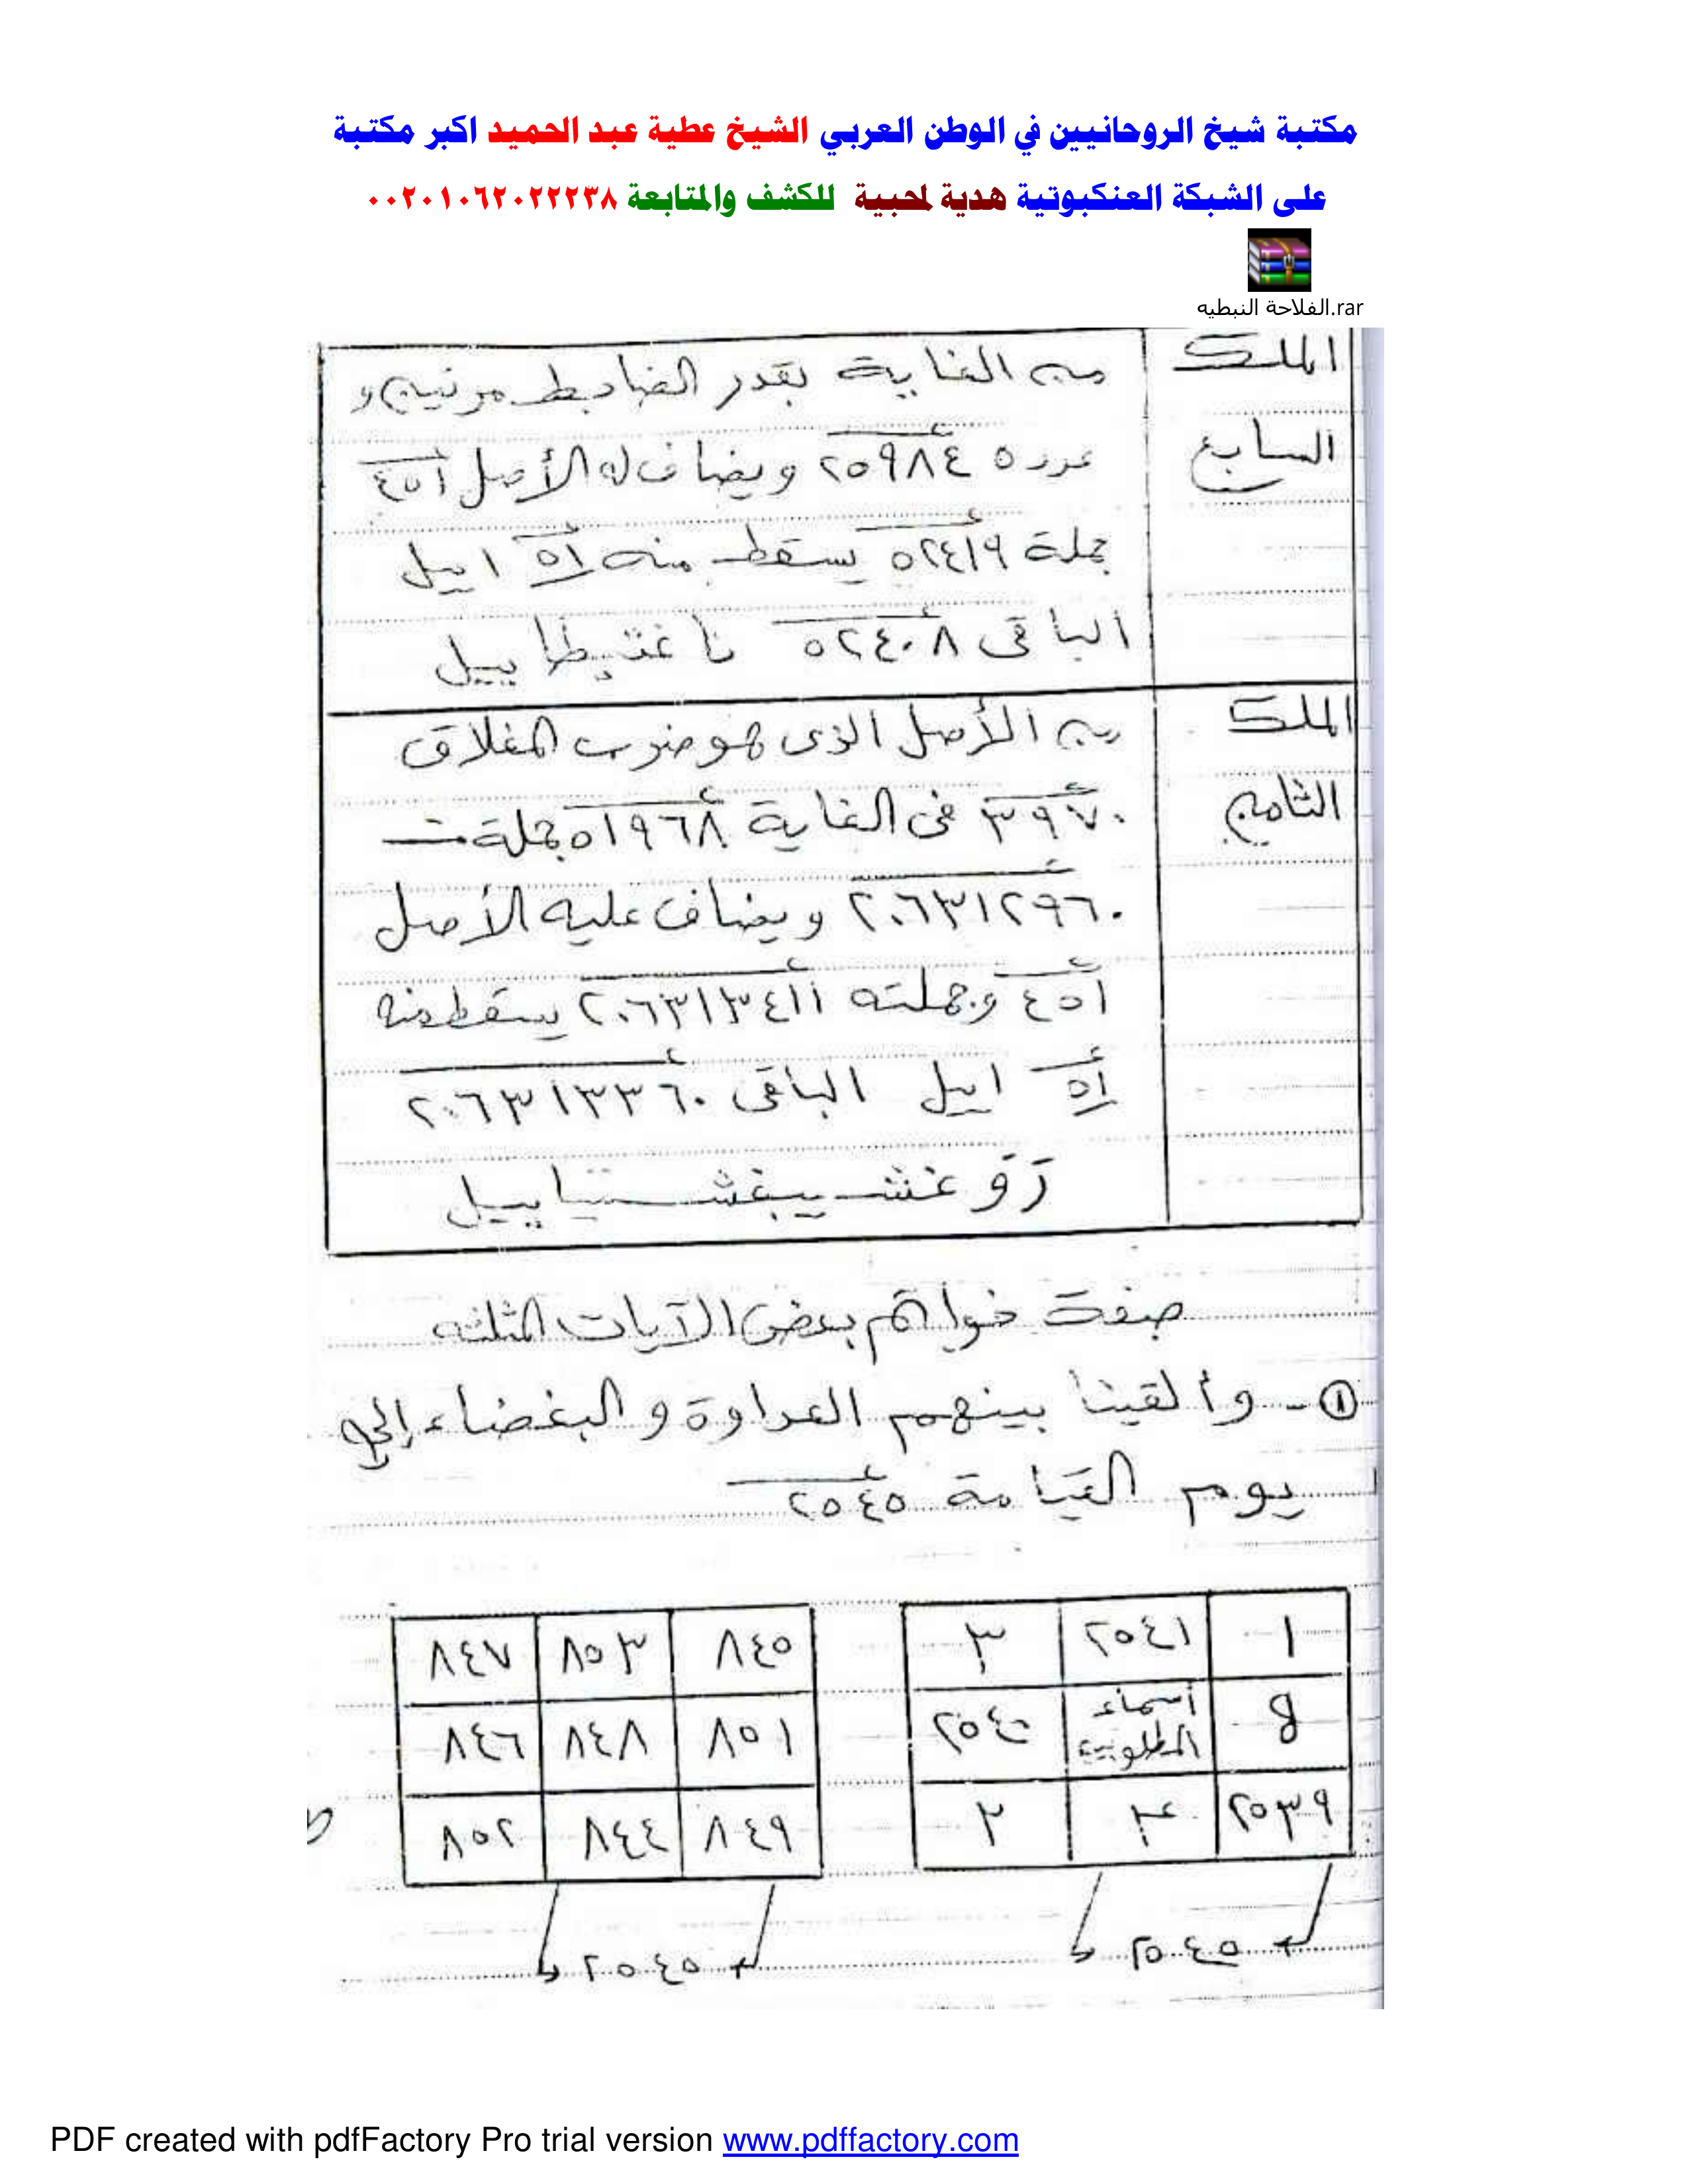 مكتبة شيخ الروحانيين في الوطن العربي الشيخ عطية عبد الحميد اكبر مكتبة
على الشبكة العنكبوتية هدية لمحبية للكشف والمتابعة ٠٠٢٠١٠٦٢٠٢٢٢٣٨
الفلاحة النبطيه.rar
الملك
السابع
من الغاية بقدر الضابط مرتين و
عدده ٢٥٩٨٤ ويضاف له الأصل ٤٥١
جملة ٥٢٤١٩ يسقط منه ٥١ ايل
الباقى ٥٢٤٠٨
الملك
الثامن
من الأصل الذى هو ضرب المغلاق
٣٩٧٠ فى الغاية ٥١٩٦٨ جملة
٢٠٦٣١٢٩٦٠ ويضاف عليه الأصل
٤٥١ وجملته ٢٠٦٣١٣٤١١ يسقط منه
٥١ ايل الباقى ٢٠٦٣١٣٣٦٠
صفت خواتم بعض الآيات المثلثه
١- وألقينا بينهم العداوة والبغضاء إلى
يوم القيامة ٢٥٤٥
١ ٢٥٤١ ٣
8 أسماء المطلوبين ٢٥٤٠
٢٥٣٩ ٤ ٢
٢٥٤٥
٨٤٥ ٨٥٣ ٨٤٧
٨٥١ ٨٤٨ ٨٤٦
٨٤٩ ٨٤٤ ٨٥٢
٢٥٤٥
PDF created with pdfFactory Pro trial version www.pdffactory.com